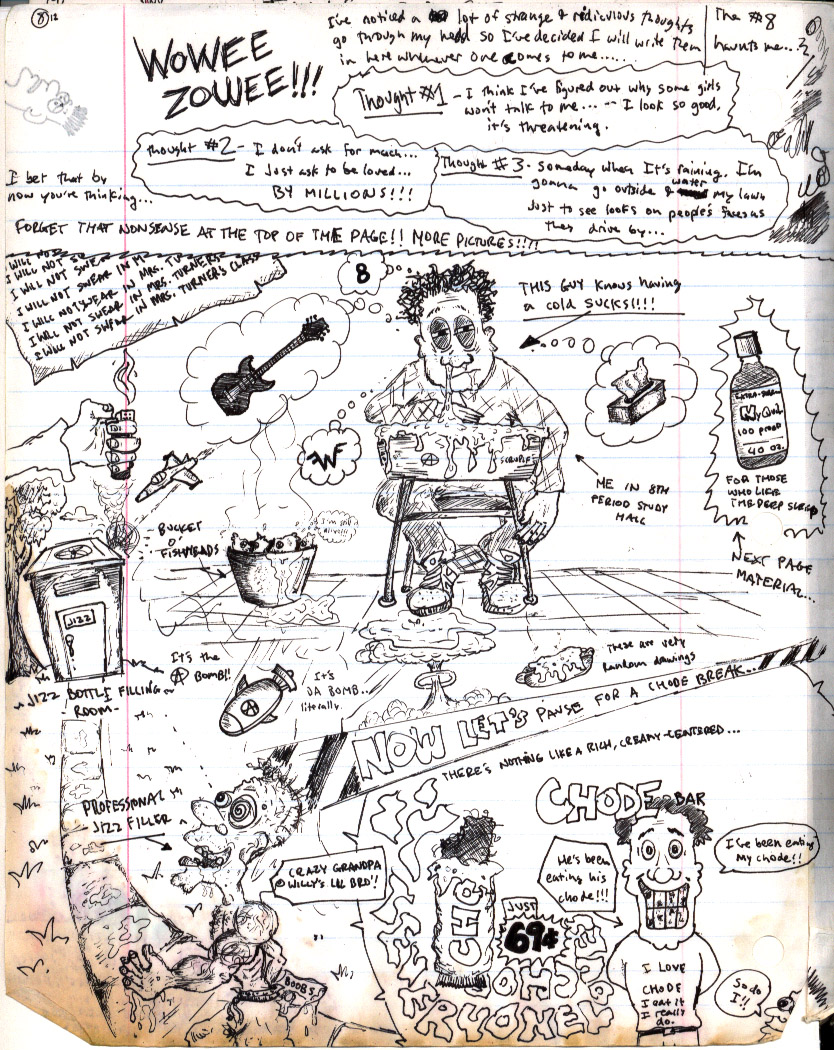 8
WOWEE
ZOWEE!!!
I've noticed a lot of strange & rediculous thoughts
go through my head so I've decided I will write them
in here whenever one comes to me......
The #8
haunts me...
Thought #1 - I think I've figured out why some girls
won't talk to me... -- I look so good,
it's threatening.
Thought #2 - I don't ask for much...
I Just ask to be loved...
BY MILLIONS!!!
Thought #3 - Someday when It's raining, I'm
gonna go outside & water my lawn
Just to see looks on people's faces as
they drive by...
I bet that by
now you're thinking...
FORGET THAT NONSENSE AT THE TOP OF THE PAGE!! MORE PICTURES!!!!
I WILL NOT SWEAR IN M
I WILL NOT SWEAR IN MRS. TU
I WILL NOT SWEAR IN MRS. TURNERS
I WILL NOT SWEAR IN MRS. TURNER'S CLASS
8
THIS GUY KNOWS HAVING
a cold SUCKS!!!!
W
SCRUPLE
EXTRA-
NyQuil
100 PROOF
40 OZ.
FOR THOSE
WHO LIKE
THE DEEP SLEEP
NEXT PAGE
MATERIAL...
ME IN 8TH
PERIOD STUDY
HALL
BUCKET
O'
FISHHEADS
I'm still
alive!!!
JIZZ
JIZZ BOTTLE FILLING
-ROOM-
It's the
A BOMB!!
A
It's
DA BOMB...
literally.
These are very
Random drawings
NOW LET'S PAUSE FOR A CHODE BREAK...
THERE'S NOTHING LIKE A RICH, CREAMY-CENTERED...
CHODE BAR
PROFESSIONAL
JIZZ FILLER
CRAZY GRANDPA
WILLY'S LIL BRO'!
BOOBS
CHO
JUST
69¢
He's been
eating his
chode!!!
I've been eating
My chode!!
I LOVE
CHODE
I eat it
I really
do.
So do
I!!